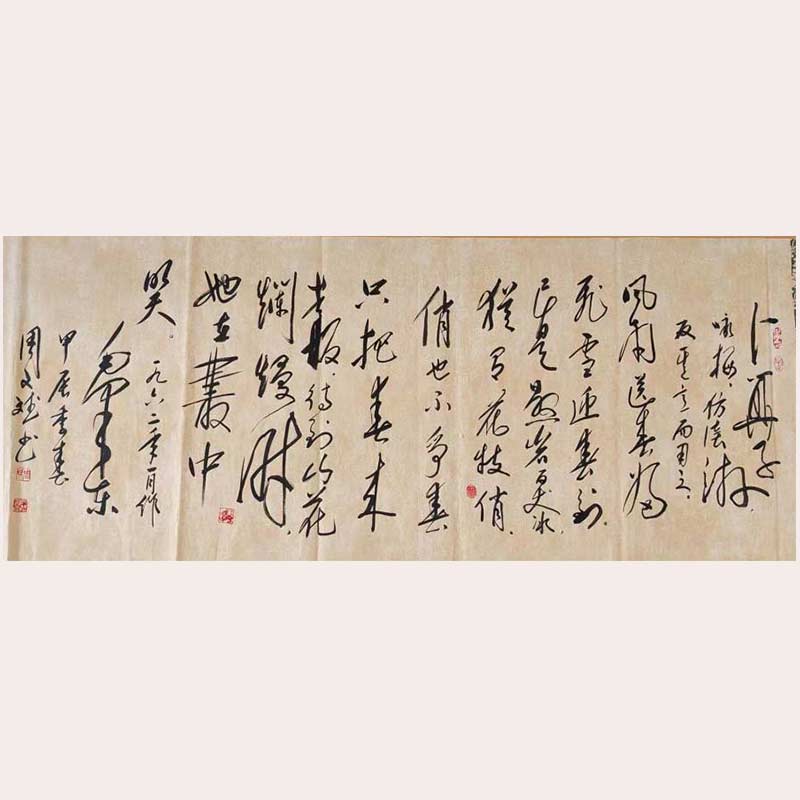 卜算子
咏梅，仿陆游
反其意而用之，
风雨送春归
飞雪迎春到
已是悬崖百丈冰，
犹有花枝俏，
俏也不争春
只把春来
报，待到山花
烂熳时，
她在丛中
笑。
一九六二年一月作
毛泽东
甲辰季春
周文斌书